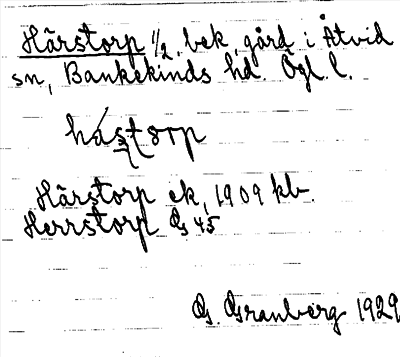 Härstorp 1/2, bek. gård i Åtvid
sn, Bankekinds hd. Ögl. l.
hástorp
Härstorp ek, 1909 kb.
Herrstorp Gs 45
G. Granberg 1929